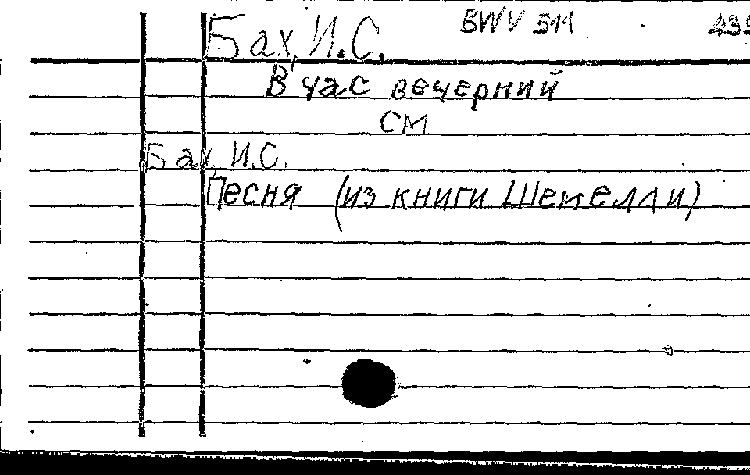 Бах, И.С. BWV 511 439
В час вечерний
см
Бах, И.С.
Песня (из книги Шемелли)